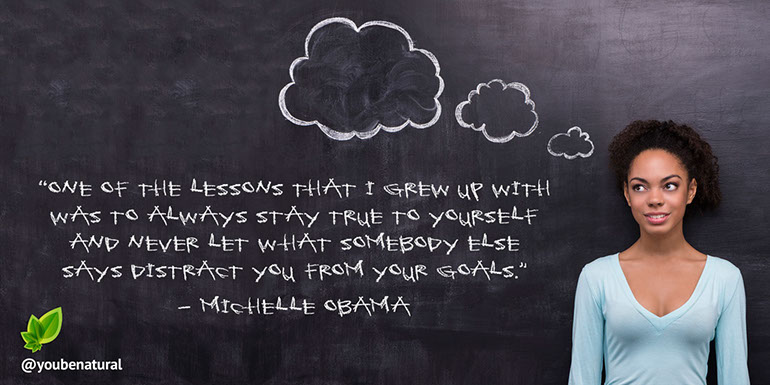 “ONE OF THE LESSONS THAT I GREW UP WITH
WAS TO ALWAYS STAY TRUE TO YOURSELF
AND NEVER LET WHAT SOMEBODY ELSE
SAYS DISTRACT YOU FROM YOUR GOALS.”
– MICHELLE OBAMA
@youbenatural